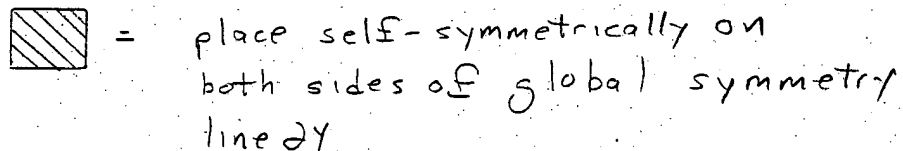 = place self-symmetrically on
both sides of global symmetry
line 2Y